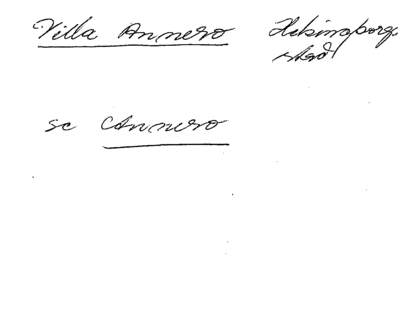 Villa Annero Helsingborgs
stad
se Annero